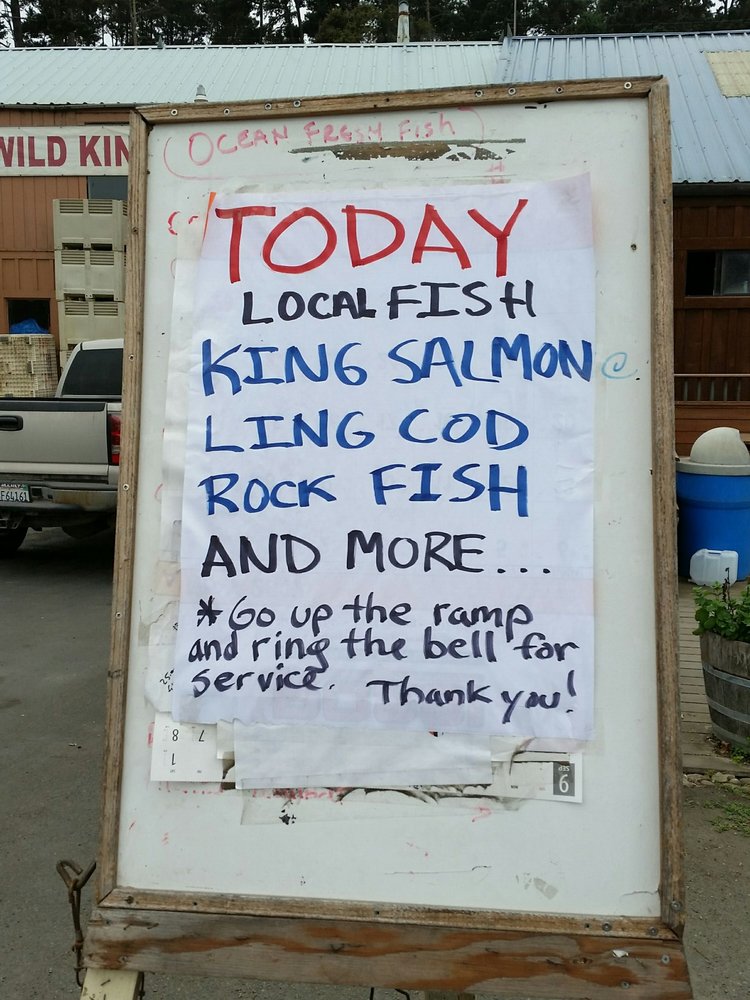 OCEAN FRESH FISH
WILD KIN
TODAY
LOCAL FISH
KING SALMON
LING COD
ROCK FISH
AND MORE...
*Go up the ramp
and ring the bell for
service. Thank you!
7 8
1
SEP
9